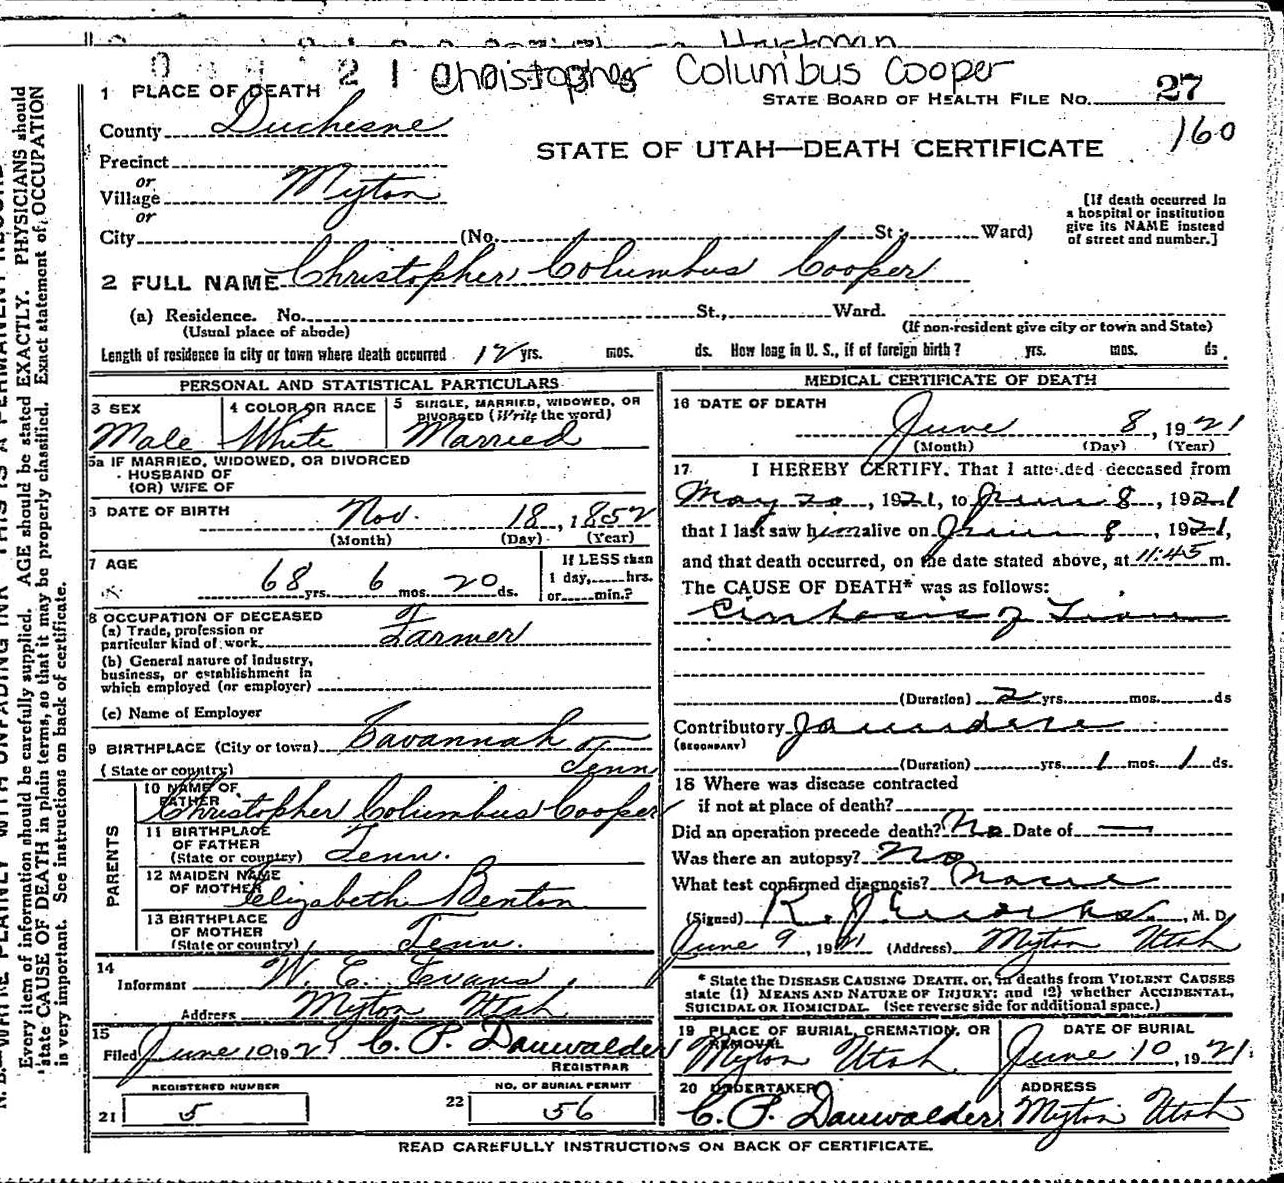 21 Christopher Columbus Cooper
1 PLACE OF DEATH
STATE BOARD OF HEALTH FILE No. 27
160
County Duchesne
STATE OF UTAH—DEATH CERTIFICATE
Precinct
or
Village Myton
or
[If death occurred in
a hospital or institution
give its NAME instead
of street and number.]
City (No. St.; Ward)
2 FULL NAME Christopher Columbus Cooper
(a) Residence. No. St., Ward.
(Usual place of abode) (If non-resident give city or town and State)
Length of residence in city or town where death occurred 12 yrs. mos. ds. How long in U. S., if of foreign birth? yrs. mos. ds.
PERSONAL AND STATISTICAL PARTICULARS
3 SEX
Male
4 COLOR OR RACE
White
5 SINGLE, MARRIED, WIDOWED, OR
DIVORCED (Write the word)
Married
5a IF MARRIED, WIDOWED, OR DIVORCED
HUSBAND OF
(OR) WIFE OF
6 DATE OF BIRTH
Nov. 18, 1852
(Month) (Day) (Year)
7 AGE
68 yrs. 6 mos. 20 ds.
If LESS than
1 day, hrs.
or min.?
8 OCCUPATION OF DECEASED
(a) Trade, profession or
particular kind of work Farmer
(b) General nature of industry,
business, or establishment in
which employed (or employer)
(c) Name of Employer
9 BIRTHPLACE (City or town) Savannah
(State or country) Tenn
PARENTS
10 NAME OF
FATHER Christopher Columbus Cooper
11 BIRTHPLACE
OF FATHER
(State or country) Tenn.
12 MAIDEN NAME
OF MOTHER Elizabeth Benton
13 BIRTHPLACE
OF MOTHER
(State or country) Tenn.
14
Informant W. E. Evans
Address Myton Utah
15
Filed June 10 192 C. P. Dauwalder
REGISTRAR
REGISTERED NUMBER
21 5
NO. OF BURIAL PERMIT
22 56
MEDICAL CERTIFICATE OF DEATH
16 DATE OF DEATH
June 8, 1921
(Month) (Day) (Year)
17 I HEREBY CERTIFY. That I attended deceased from
May 20, 1921, to June 8, 1921
that I last saw him alive on June 8, 1921,
and that death occurred, on the date stated above, at 11:45 m.
The CAUSE OF DEATH* was as follows:
Cirrhosis of Liver
(Duration) 2 yrs. mos. ds
Contributory Jaundice
(SECONDARY)
(Duration) yrs. 1 mos. 1 ds.
18 Where was disease contracted
if not at place of death?
Did an operation precede death? No Date of —
Was there an autopsy? No
What test confirmed diagnosis? None
(Signed) R. J. , M. D
June 9, 1921 (Address) Myton Utah
* State the DISEASE CAUSING DEATH, or, in deaths from VIOLENT CAUSES
state (1) MEANS AND NATURE OF INJURY; and (2) whether ACCIDENTAL,
SUICIDAL OR HOMICIDAL. (See reverse side for additional space.)
19 PLACE OF BURIAL, CREMATION, OR
REMOVAL
Myton Utah
DATE OF BURIAL
June 10, 1921
20 UNDERTAKER
C. P. Dauwalder
ADDRESS
Myton Utah
READ CAREFULLY INSTRUCTIONS ON BACK OF CERTIFICATE.
Every item of information should be carefully supplied. AGE should be stated EXACTLY. PHYSICIANS should
state CAUSE OF DEATH in plain terms, so that it may be properly classified. Exact statement of OCCUPATION
is very important. See instructions on back of certificate.